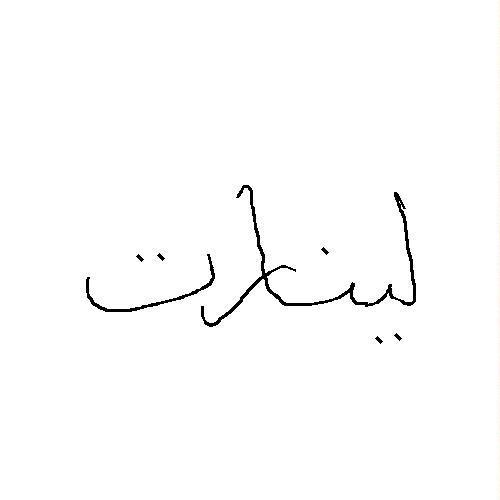 لينارت